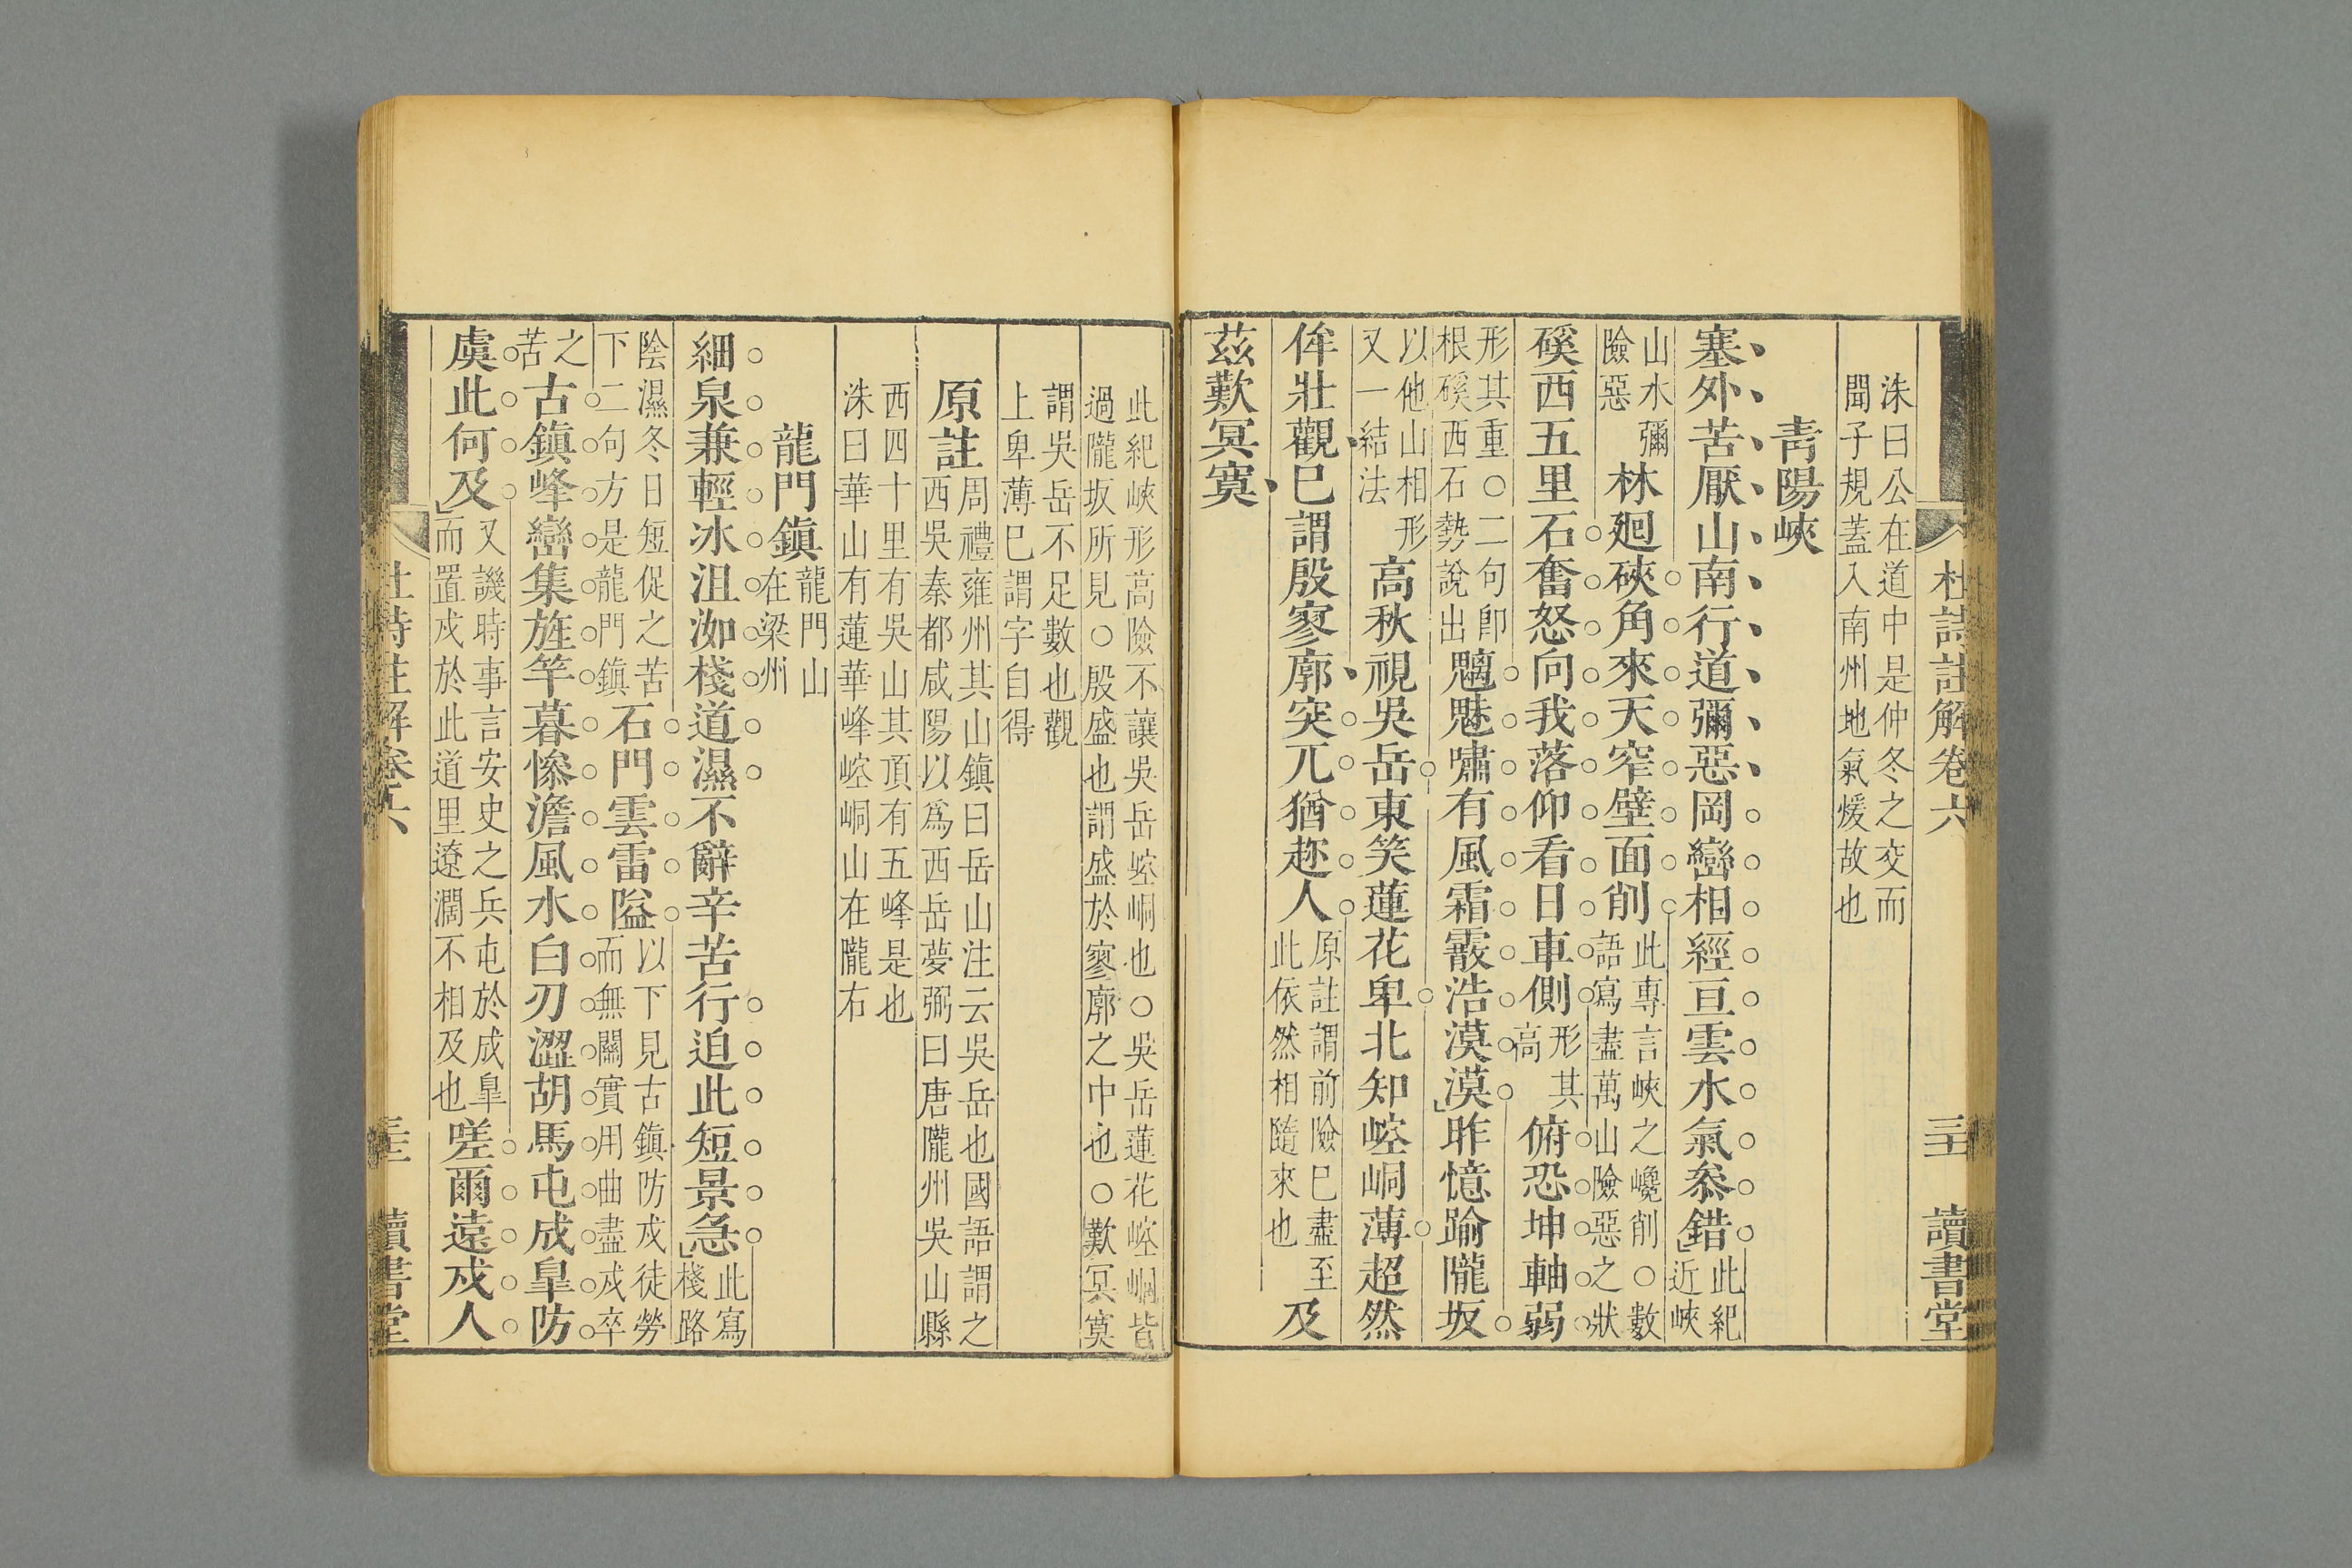 杜詩註解卷六
讀書堂
洙曰公在道中是仲冬之交而
聞子規蓋入南州地氣煖故也
青陽峽
塞外苦厭山南行道彌惡岡巒相經亘雲水氣叅錯此紀近峽
山水彌險惡林廻硤角來天窄壁面削此專言峽之巉削○數語寫盡萬山險惡之狀
磎西五里石奮怒向我落仰看日車側形其高俯恐坤軸弱
形其重○二句卽根磎西石勢說出魑魅嘯有風霜霰浩漠漠昨憶踰隴坂
以他山相形又一結法高秋視吳岳東笑蓮花卑北知崆峒薄超然
侔壯觀已謂殷寥廓突兀猶趂人原註謂前險已盡至此依然相隨來也及
茲歎冥寞
此紀峽形高險不讓吳岳崆峒也○吳岳蓮花崆峒皆
過隴坂所見○殷盛也謂盛於寥廓之中也○歎冥寞
謂吳岳不足數也觀
上卑薄巳謂字自得
原註周禮雍州其山鎭曰岳山注云吳岳也國語謂之
西吳秦都咸陽以爲西岳夢弼曰唐隴州吳山縣
西四十里有吳山其頂有五峰是也
洙曰華山有蓮華峰崆峒山在隴右
龍門鎭龍門山在梁州
細泉兼輕冰沮洳棧道濕不辭辛苦行迫此短景急此寫棧路
陰濕冬日短促之苦下二句方是龍門鎭石門雲雷隘以下見古鎭防戍徒勞而無關實用曲盡戍卒
之苦古鎭峰巒集旌竿暮慘澹風水白刃澀胡馬屯成臯防
虞此何及又譏時事言安史之兵屯於成臯而置戍於此道里遼濶不相及也嗟爾遠戍人
杜詩註解卷六
讀書堂